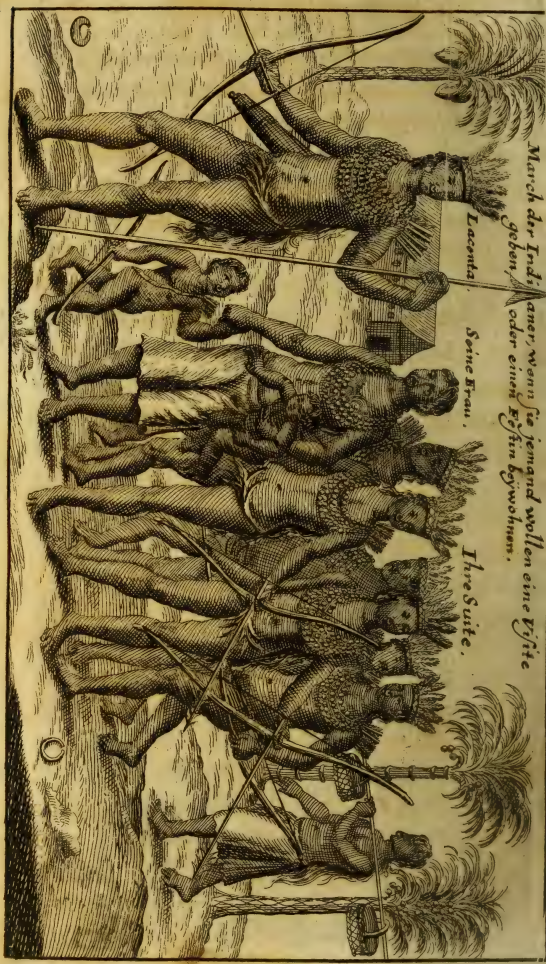 March der Indianer, wenn sie jemand wollen eine Visite
geben, oder einen Festin beywohnen.
Laconta. Seine Frau. Ihre Suite.